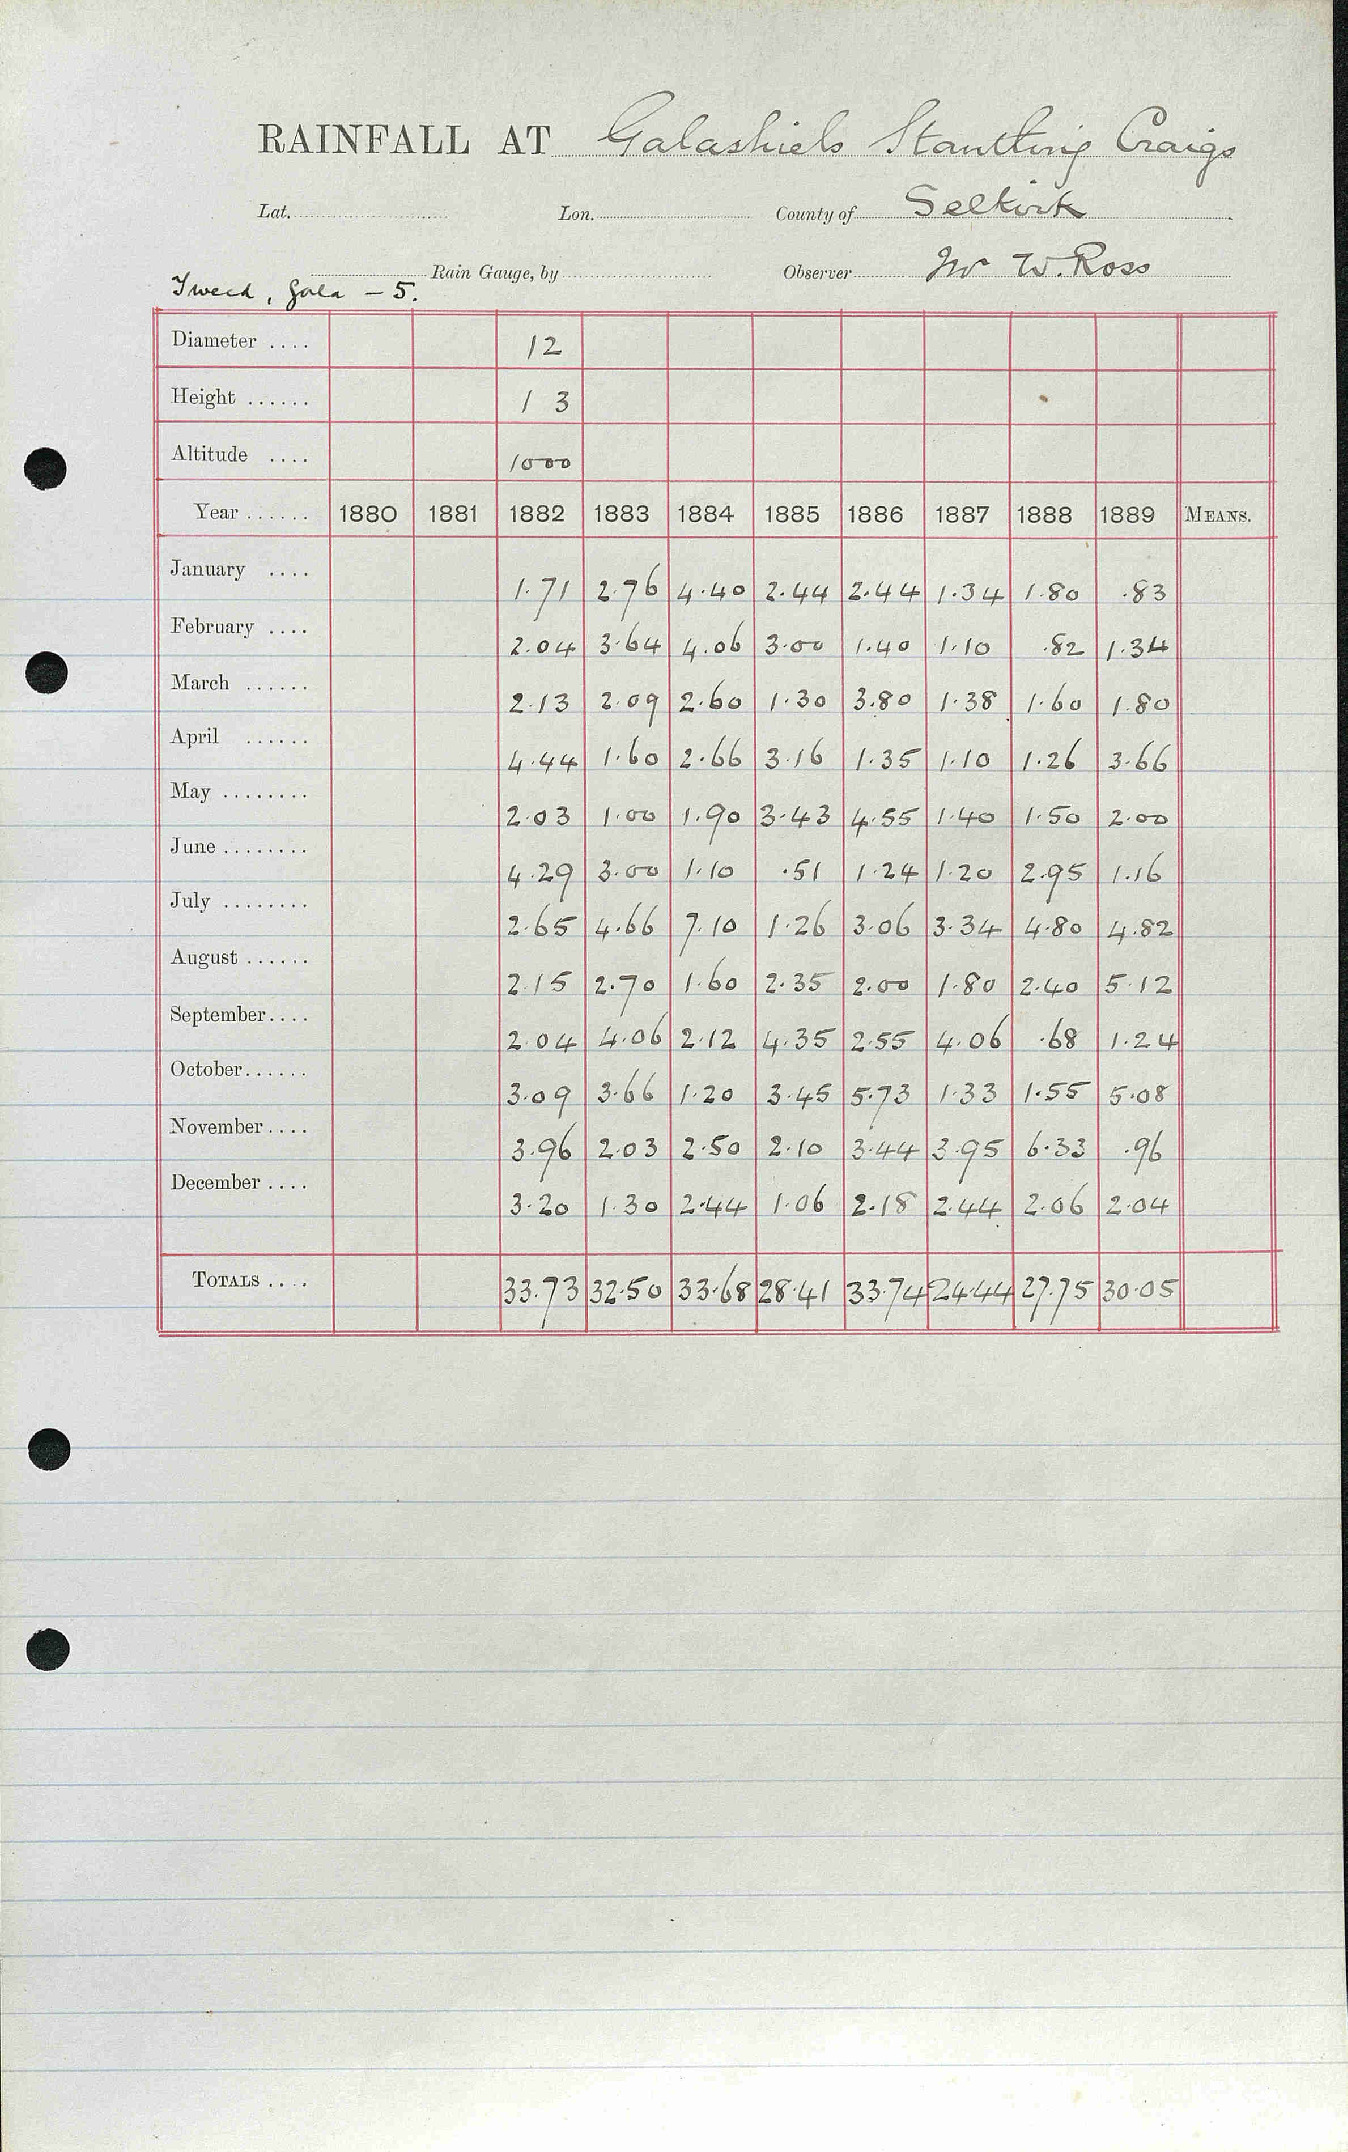 RAINFALL AT Galashiels Stantling Craigs
Lat. Lon. County of Selkirk
Rain Gauge, by Observer Mr W. Ross
Tweed, Gala - 5.
Diameter .... 12
Height ...... 1 3
Altitude .... 1000
Year ...... 1880 1881 1882 1883 1884 1885 1886 1887 1888 1889 MEANS.
January .... 1.71 2.76 4.40 2.44 2.44 1.34 1.80 .83
February .... 2.04 3.64 4.06 3.00 1.40 1.10 .82 1.34
March ...... 2.13 2.09 2.60 1.30 3.80 1.38 1.60 1.80
April ...... 4.44 1.60 2.66 3.16 1.35 1.10 1.26 3.66
May ........ 2.03 1.00 1.90 3.43 4.55 1.40 1.50 2.00
June ........ 4.29 3.00 1.10 .51 1.24 1.20 2.95 1.16
July ........ 2.65 4.66 7.10 1.26 3.06 3.34 4.80 4.82
August ...... 2.15 2.70 1.60 2.35 2.00 1.80 2.40 5.12
September.... 2.04 4.06 2.12 4.35 2.55 4.06 .68 1.24
October...... 3.09 3.66 1.20 3.45 5.73 1.33 1.55 5.08
November.... 3.96 2.03 2.50 2.10 3.44 3.95 6.33 .96
December .... 3.20 1.30 2.44 1.06 2.18 2.44 2.06 2.04
TOTALS .... 33.73 32.50 33.68 28.41 33.74 24.44 27.75 30.05